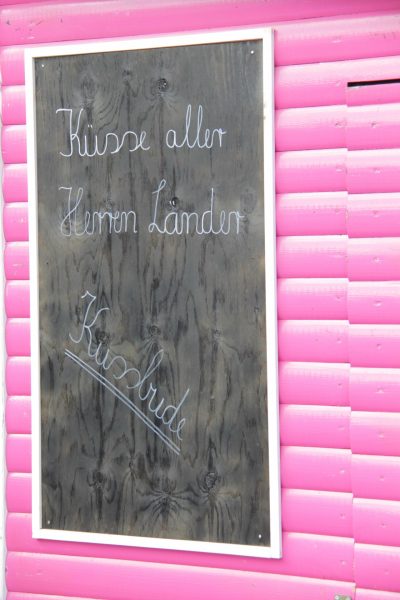 Küsse aller
Herren Länder
Kussbude